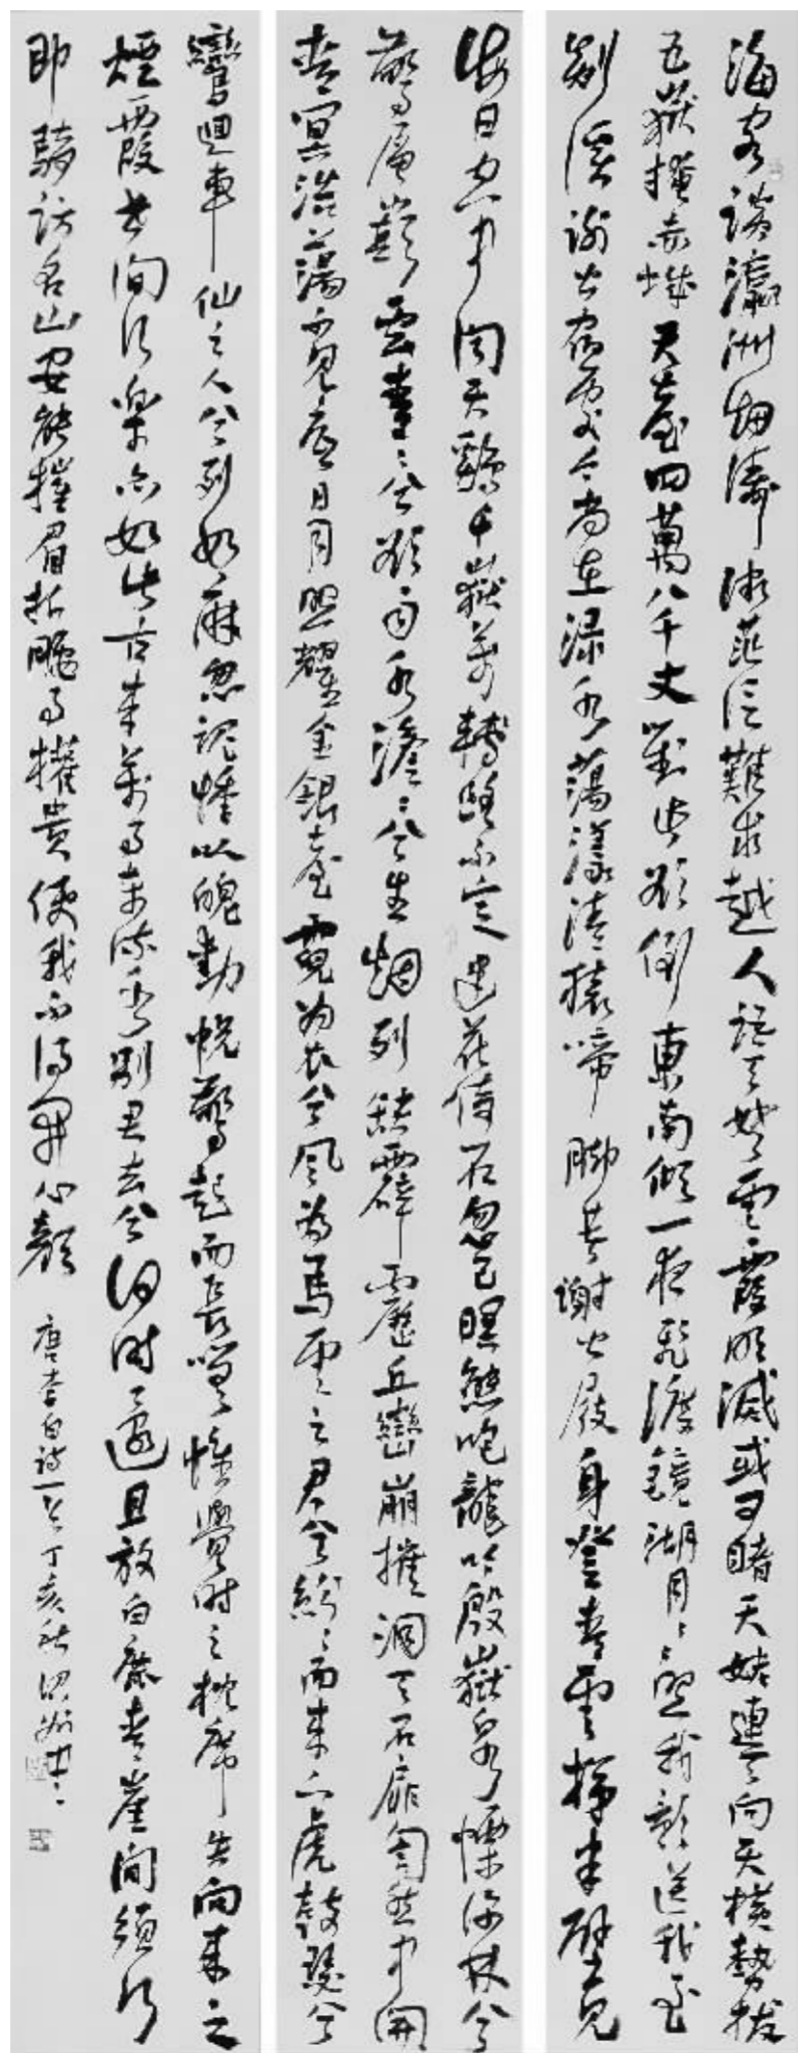 海客談瀛洲烟濤微茫信難求越人語天姥雲霞明滅或可睹天姥連天向天橫勢拔
五嶽掩赤城天臺四萬八千丈對此欲倒東南傾一夜飛渡鏡湖月月照我影送我至
剡溪謝公宿處今尚在淥水蕩漾清猿啼腳著謝公屐身登青雲梯半壁見
海日空中聞天雞千巖萬轉路不定迷花倚石忽已暝熊咆龍吟殷巖泉慄深林兮
驚層巔雲青青兮欲雨水澹澹兮生烟列缺霹靂丘巒崩摧洞天石扉訇然中開
青冥浩蕩不見底日月照耀金銀臺霓為衣兮風為馬雲之君兮紛紛而來下虎鼓瑟兮
鸞迴車仙之人兮列如麻忽魂悸以魄動怳驚起而長嗟惟覺時之枕席失向來之
煙霞世間行樂亦如此古來萬事東流水別君去兮何時還且放白鹿青崖間須行
即騎訪名山安能摧眉折腰事權貴使我不得開心顏
唐李白詩一首丁亥秋